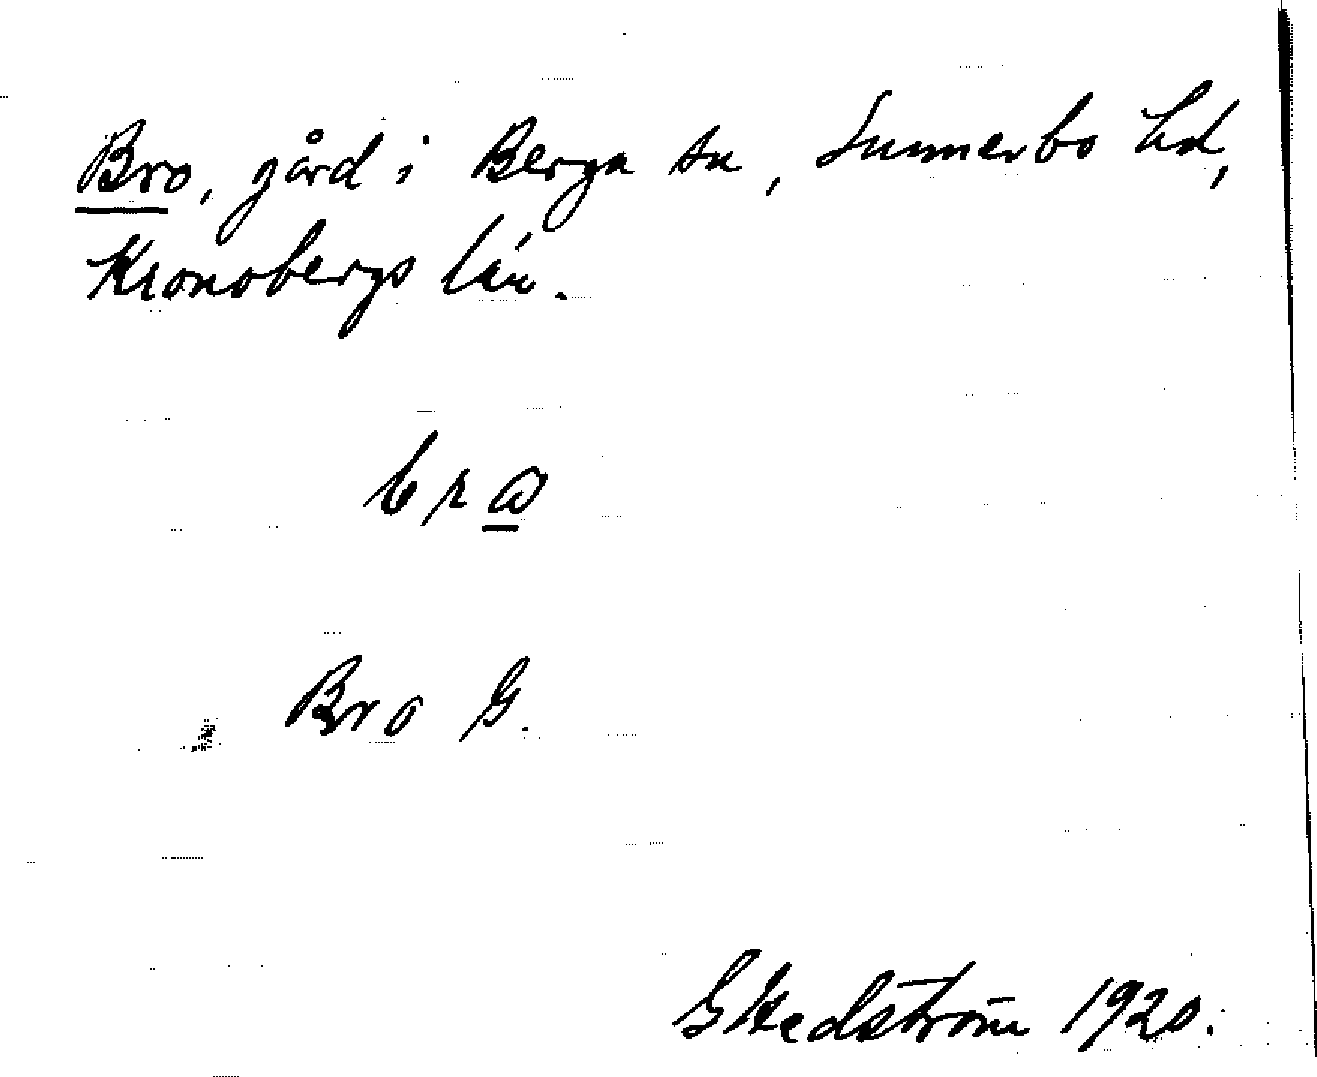 Bro, gård i Berga sn, Sunnerbo hd,
Kronobergs län.
bra
Bro G.
G Hedström 1920.